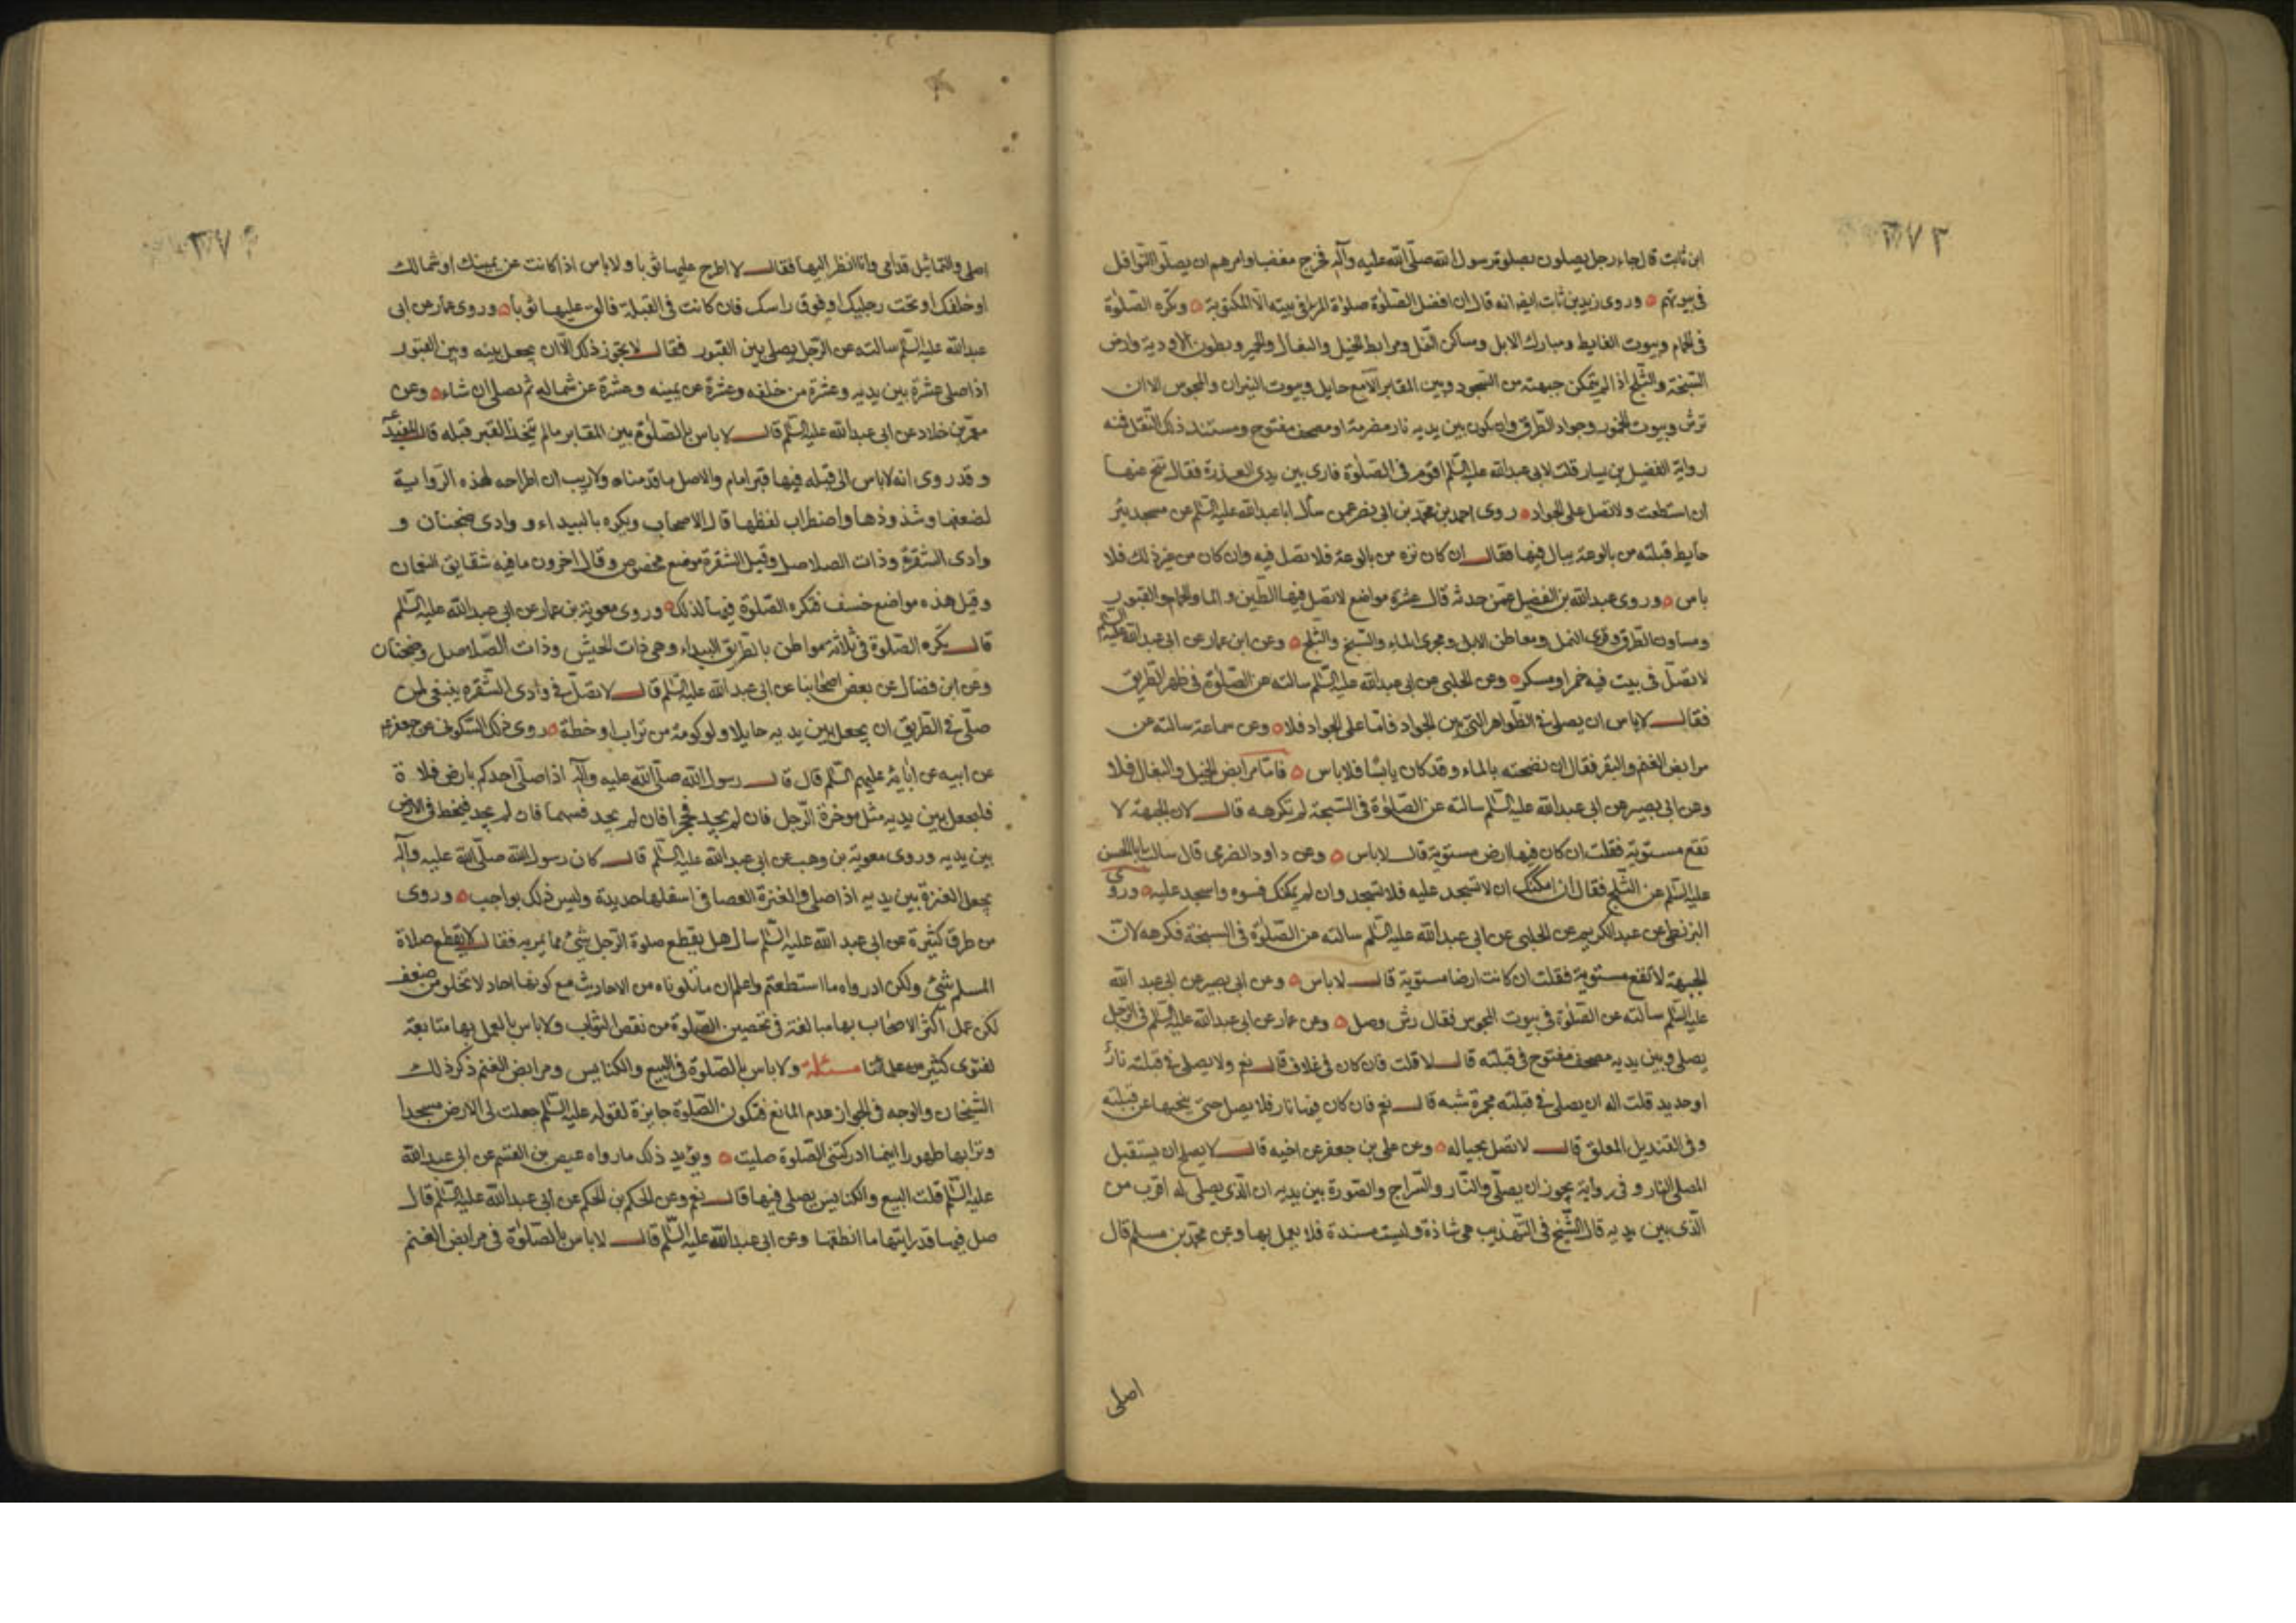 ٣٧٣
ابن ثابت قال جاء رجل يصلون بصلوة رسول الله صلّى الله عليه وآله فخرج مغضبا وامرهم ان يصلّوا النّوافل
فى بيوتهم وروى زيد بن ثابت ايضا انه قال ان افضل الصّلوة صلوة المرء فى بيته الّا المكتوبة وتكره الصّلوة
فى الحمام وبيوت الغايط ومبارك الابل ومساكن النّمل ومرابط الخيل والبغال والحمير وبطون الاودية وارض
السّبخة والثّلج اذا لم يتمكن جبهته من السّجود وبين المقابر الّا مع حايل وبيوت النيران والمجوس الا ان
ترش وبيوت الخمور وجواد الطّرق وان يكون بين يديه نار مضرمة او مصحف مفتوح ومستند ذلك النّقل فنه
رواية الفضيل بن يسار قلت لابى عبدالله عليه السّلم اقوم فى الصّلوة فارى بين يدى العذرة فقال تنح عنها
ان استطعت ولا تصل على الجواد روى احمد بن محمّد بن ابى نصر عمن سأل ابا عبدالله عليه السّلم عن مسجد ينز
حايط قبلته من بالوعة يبال فيها فقال ان كان نزه من بالوعة فلا تصل فيه وان كان من غير ذلك فلا
باس وروى عبدالله بن الفضيل عمّن حدثه قال عشرة مواضع لا تصل فيها الطّين والماء والحمام والقبور
ومسان الطّرق وقرى النمل ومعاطن الابل ومجرى الماء والسّبخ والثلج وعن ابن عمار عن ابى عبدالله عليه السلم
لا تصلّ فى بيت فيه خمر او مسكر وعن الحلبى عن ابى عبدالله عليه السّلم سالته عن الصّلوة فى ظهر الطّريق
فقال لا باس ان يصلى فى الظّواهر الّتى بين الجواد فامّا على الجواد فلا وعن سماعة سالته عن
مرابض الغنم والبقر فقال ان نضحته بالماء وقد كان يابسًا فلا باس فامّا مرابض الخيل والبغال فلا
وعن ابى بصير عن ابى عبدالله عليه السّلم سالته عن الصّلوة فى السّبخة لم تكرهه قال لان الجبهة لا
تقع مستوية فقلت ان كان فيها ارض مستوية قال لا باس وعن داود الصرمى قال سالت ابا الحسن
عليه السّلم عن الثّلج فقال ان امكنك ان لا تسجد عليه فلا تسجد وان لم يمكنك فسوه واسجد عليه وروى
البزنطى عن عبدالكريم عن الحلبى عن ابى عبدالله عليه السّلم سالته عن الصّلوة فى السبخة فكرهه لانّ
الجبهة لا تقع مستوية فقلت ان كانت ارضا مستوية قال لا باس وعن ابى بصير عن ابى عبد الله
عليه السّلم سالته عن الصّلوة فى بيوت المجوس فقال رش وصل وعن عمار عن ابى عبدالله عليه السّلم فى الرّجل
يصلى وبين يديه مصحف مفتوح فى قبلته قال لا قلت فان كان فى غلاف قال نعم ولا يصلى فى قبلته نارٌ
او حديد قلت اله ان يصلى فى قبلته مجمرة شبه قال نعم فان كان فيها نار فلا يصل حتى ينحيها عن قبلته
وفى القنديل المعلق قال لا تصل بحياله وعن على بن جعفر عن اخيه قال لا يصلح ان يستقبل
المصلى النار وفى رواية يجوز ان يصلّى والنّار والسّراج والصّورة بين يديه ان الّذى يصلى له اقرب من
الّذى بين يديه قال الشّيخ فى التّهذيب هى شاذة وليست مسندة فلا يعمل بها وعن محمّد بن مسلم قال
اصلى
٣٧٤
اصلى والتماثيل قدامى وانا انظر اليها فقال لا اطرح عليها ثوبا ولا باس اذا كانت عن يمينك او شمالك
او خلفك او تحت رجليك او فوق راسك فان كانت فى القبلة فالق عليها ثوبا وروى عمار عن ابى
عبدالله عليه السّلم سالته عن الرّجل يصلى بين القبور فقال لا يجوز ذلك الّا ان يجعل بينه وبين القبور
اذا صلى عشرة بين يديه وعشرة من خلفه وعشرة عن يمينه وعشرة عن شماله ثم يصلى ان شاء وعن
معمّر بن خلاد عن ابى عبدالله عليه السّلم قال لا باس بالصلوة بين المقابر مالم يتخذ القبر قبله قال المفيد
وقد روى انه لا باس الى قبله فيها قبر امام والاصل ما قدمناه ولا ريب ان اطراحه لهذه الرّواية
لضعفها وشذوذها واضطراب لفظها قال الاصحاب ويكره بالبيداء ووادى ضجنان و
وادى الشّقرة وذات الصلاصل وقيل الشّقرة موضع مخصوص وقال اخرون ما فيه شقايق النعمان
وقيل هذه مواضع خسف فتكره الصّلوة فيها لذلك وروى معوية بن عمار عن ابى عبدالله عليه السّلم
قال تكره الصّلوة فى ثلاثة مواطن بالطّريق البيداء وهى ذات الجيش وذات الصّلاصل وضجنان
وعن ابن فضال عن بعض اصحابنا عن ابى عبدالله عليه السّلم قال لا تصلّ فى وادى الشّقره ينبغى لمن
صلّى فى الطّريق ان يجعل بين يديه حايلا ولو كومة من تراب او خطة روى ذلك السّكونى عن جعفر
عن ابيه عن آبائه عليهم السّلم قال قال رسول الله صلّى الله عليه وآله اذا صلّى احدكم بارض فلاة
فليجعل بين يديه مثل موخرة الرّحل فان لم يجد فحجرا فان لم يجد فسهما فان لم يجد فيخط فى الارض
بين يديه وروى معوية بن وهب عن ابى عبدالله عليه السّلم قال كان رسول الله صلّى الله عليه وآله
يجعل العنزة بين يديه اذا صلى والعنزة العصا فى اسفلها حديدة وليس ذلك بواجب وروى
من طرق كثيرة عن ابى عبد الله عليه السّلم سال هل يقطع صلوة الرّجل شئ مما يمر به فقال لا يقطع صلاة
المسلم شئ ولكن ادرواه ما استطعتم واعلم ان ما تلوناه من الاحاديث مع كونها احاد لا تخلو من ضعف
لكن عمل اكثر الاصحاب بها مبالغة فى تحصين الصّلوة من نقص الثواب ولا باس بالعمل بها متابعة
لفتوى كثير من علمائنا مسئلة ولا باس بالصلوة فى البيع والكنايس ومرابض الغنم ذكر ذلك
الشيخان والوجه فى الجواز عدم المانع فتكون الصّلوة جايزة لقوله عليه السّلم جعلت لى الارض مسجدا
وترابها طهورا اينما ادركتنى الصّلوة صليت ويؤيد ذلك ما رواه عيص بن القسم عن ابى عبدالله
عليه السّلم قلت البيع والكنايس يصلى فيها قال نعم وعن الحكم بن الحكم عن ابى عبدالله عليه السّلم قال
صل فيها قد رايتها ما انظفها وعن ابى عبدالله عليه السّلم قال لا باس بالصّلوة فى مرابض الغنم